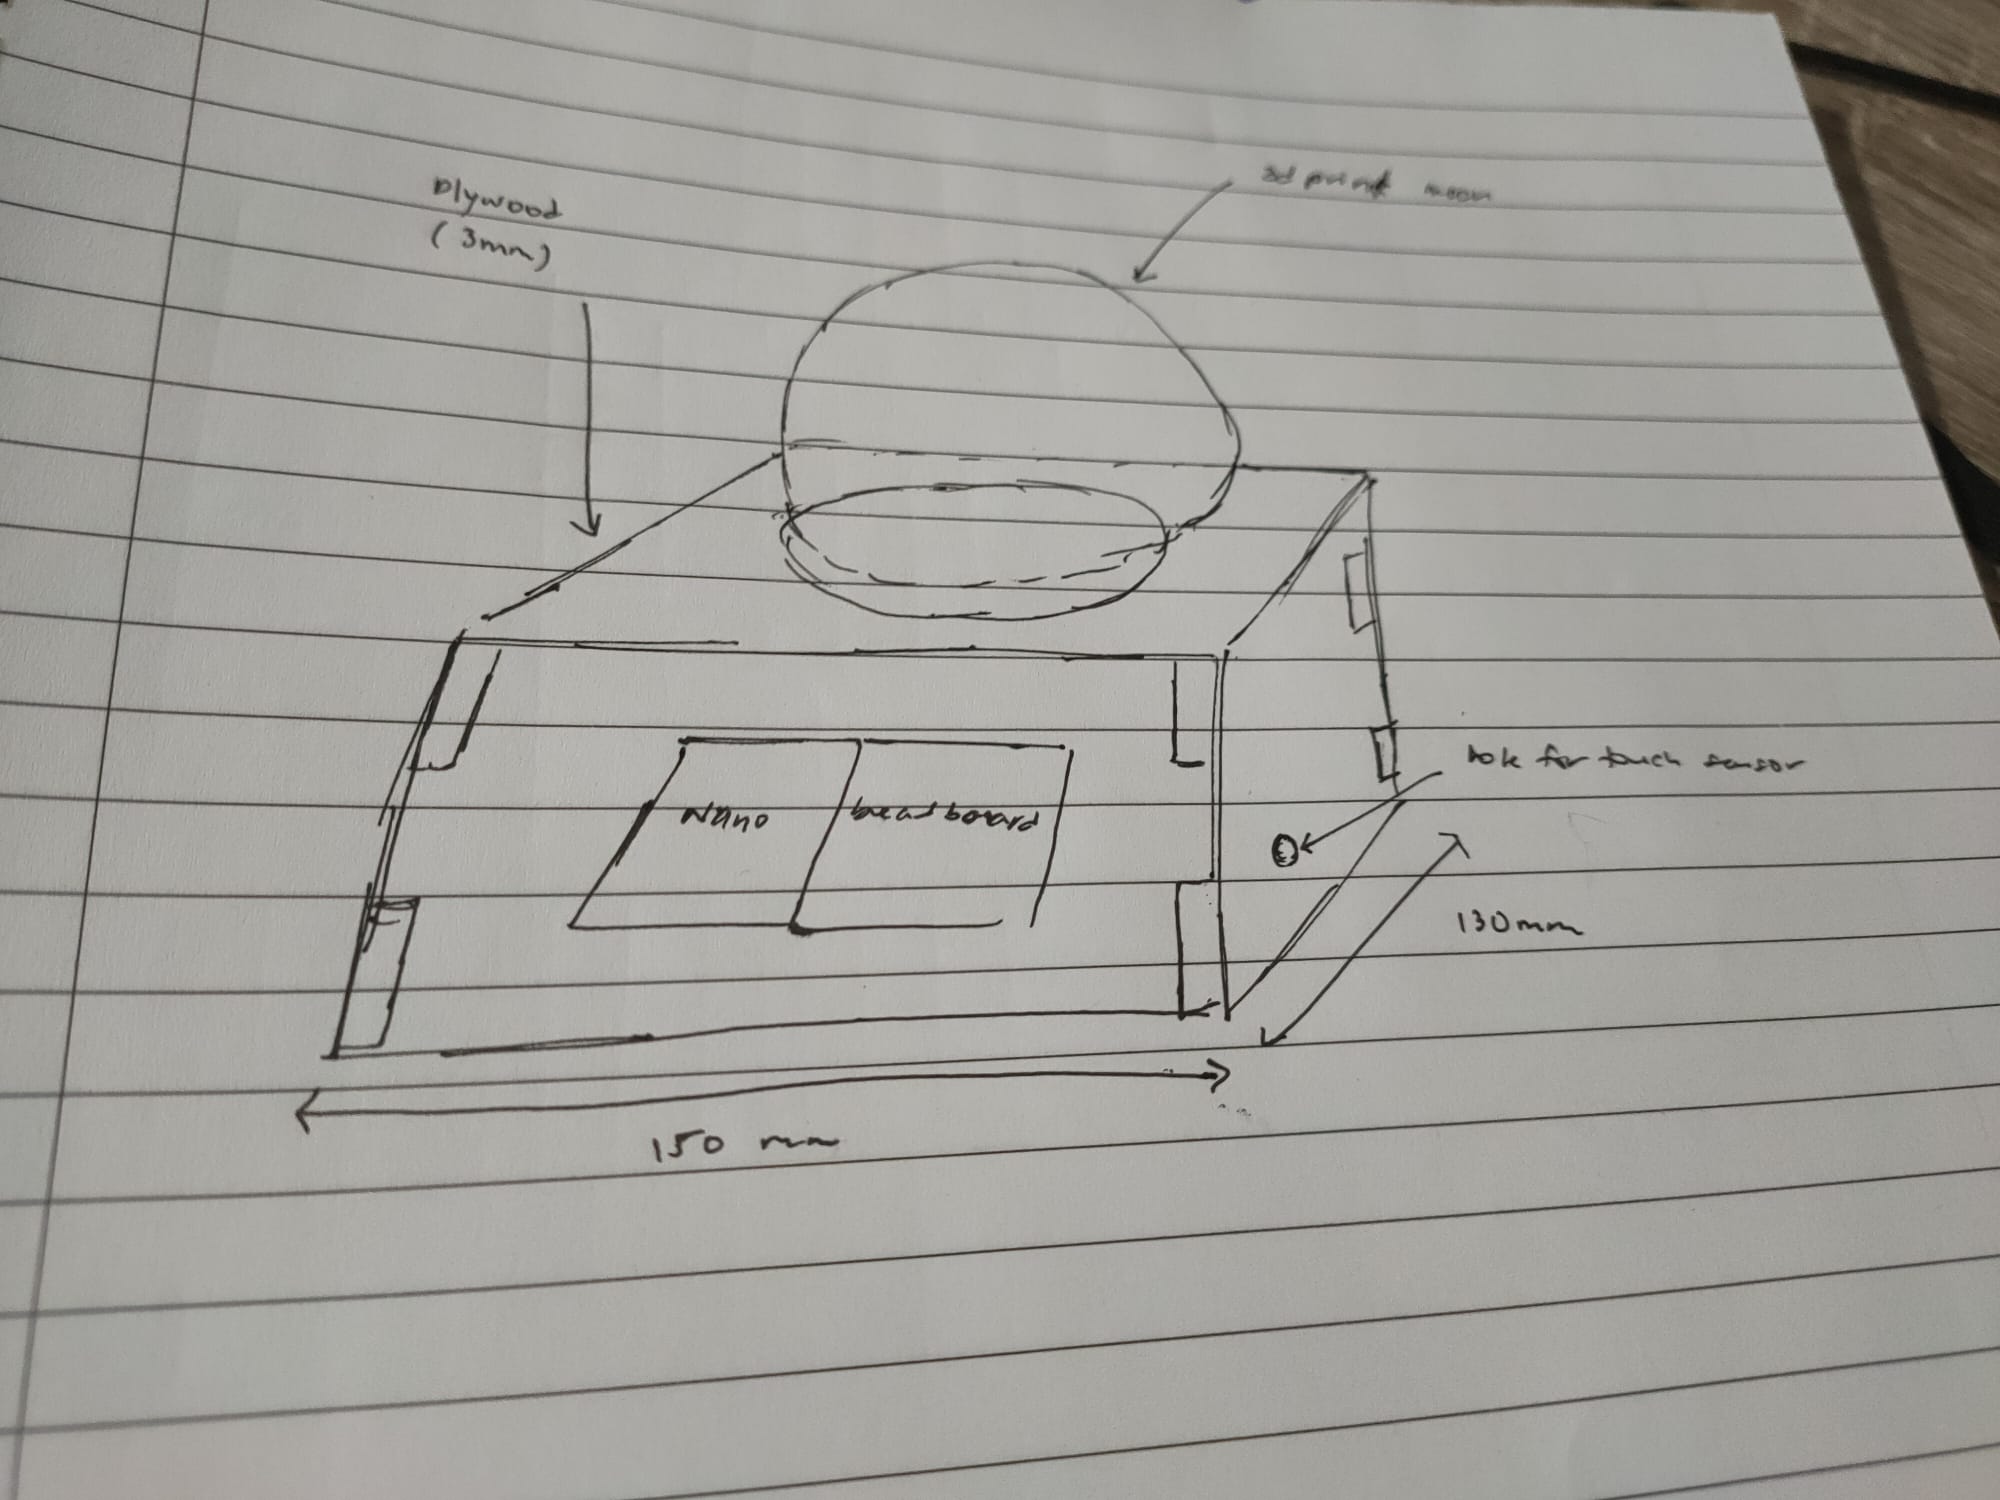 Plywood
(3mm)
3d print moon
Nano
breadboard
hole for touch sensor
130mm
150 mm